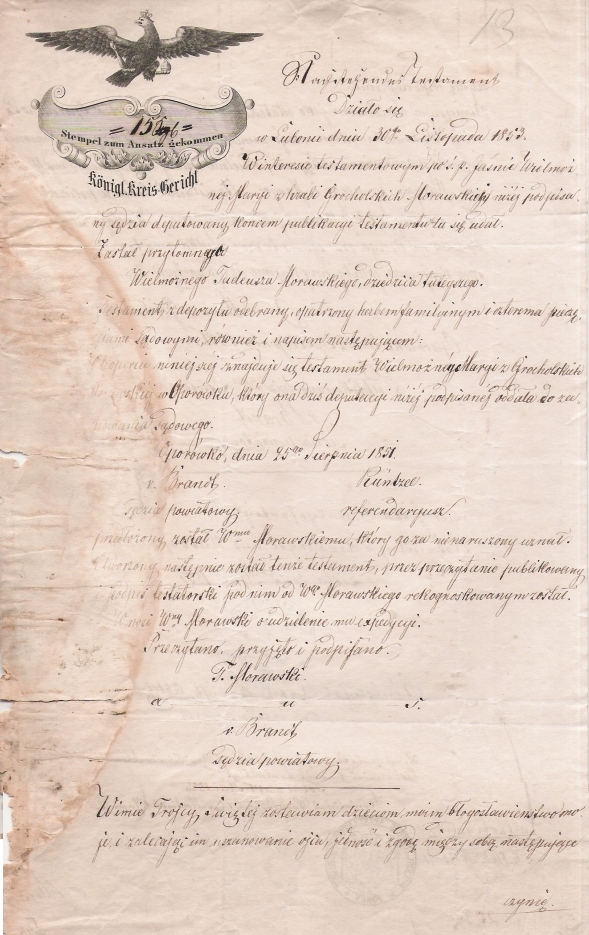 13
= 15 =
Stempel zum Ansatz gekommen
Königl. Kreis-Gericht
Nachstehendes Testament
Działo się
w Lubonii dnia 30go Listopada 1853.
W interesie testamentowym po ś. p. Jaśnie Wielmoż
nej Maryi z hrabi Grocholskich Morawskiej niżej podpisa
ny sędzia deputowany, końcem publikacyi testamentu tu się udał.
Zastał przytomnego
Wielmożnego Tadeusza Morawskiego, dziedzica tutejszego.
Testament, z depozytu odebrany, opatrzony herbem familijnym i czterema pieczę
ciami sądowymi, również i napisem następującem:
W kopercie niniejszej znajduje się testament Wielmożnej Maryi z Grocholskich
Morawskiej w Oporówku, który ona dziś deputacyi niżej podpisanej oddała do za
chowania sądowego.
Oporówko, dnia 25go Sierpnia 1851.
v. Brandt. Küntzel.
sędzia powiatowy. referendaryusz.
przełożony, został Wmu Morawskiemu, który go za nienaruszony uznał.
Otworzony następnie został tenże testament, przez przeczytanie publikowany,
i podpis testatorski pod nim od Wgo Morawskiego rekognoskowanym został.
Wnosi Wny Morawski o udzielenie mu expedycyi.
Przeczytano, przyjęto i podpisano.
T. Morawski.
a u s.
v. Brandt
Sędzia powiatowy.
W imie Trójcy Świętej zostawiam dzieciom moim błogosławieństwo mo
je, i zalecając im uszanowanie ojca, jedność i zgodę między sobą następujące
czynię.